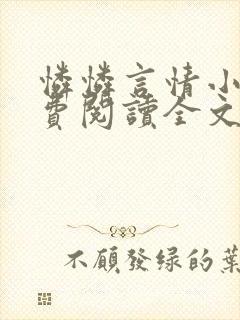 憐憐言情小
費閱讀全文
不願發绿的葉